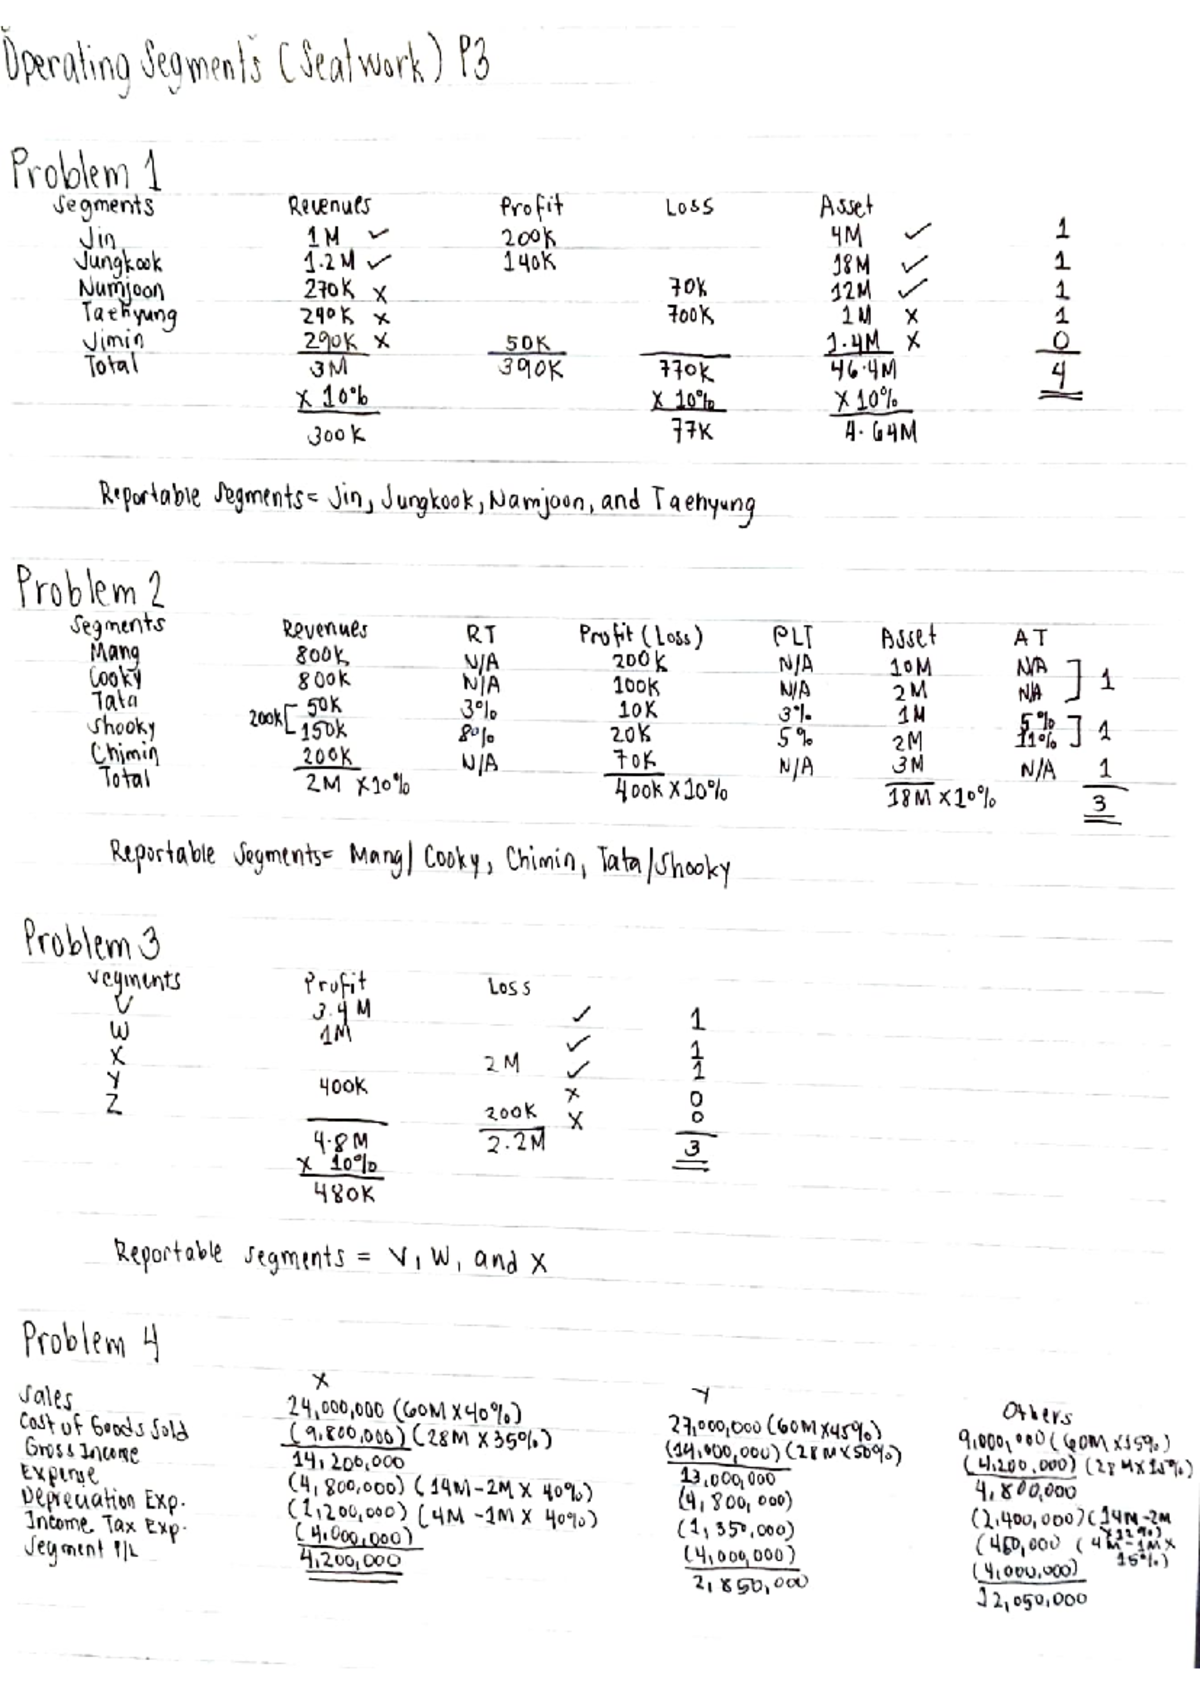 Operating Segments (Seatwork) P3
Problem 1
Segments Revenues Profit Loss Asset
Jin 1M ✓ 200K 4M ✓ 1
Jungkook 1.2M ✓ 140K 18M ✓ 1
Numjoon 270K x 70K 12M ✓ 1
Taehyung 240K x 700K 1M x 1
Jimin 290K x 50K 1.4M x 0
Total 3M 390K 770K 46.4M 4
x 10% x 10% x 10%
300K 77K 4.64M
Reportable Segments= Jin, Jungkook, Namjoon, and Taehyung
Problem 2
Segments Revenues RT Profit (Loss) PLT Asset AT
Mang 800K N/A 200K N/A 10M N/A
Cooky 800K N/A 100K N/A 2M N/A ] 1
Tata 200K [ 50K 3% 10K 3% 1M 5%
Shooky 150K 8% 20K 5% 2M 11% ] 1
Chimin 200K N/A 70K N/A 3M N/A 1
Total 2M x10% 400K x10% 18M x10% 3
Reportable Segments= Mang/Cooky, Chimin, Tata/Shooky
Problem 3
Segments Profit Loss
V 3.4M ✓ 1
W 1M ✓ 1
X 2M ✓ 1
Y 400K x 0
Z 200K x 0
4.8M 2.2M 3
x 10%
480K
Reportable segments = V, W, and X
Problem 4
X Y Others
Sales 24,000,000 (60M x 40%) 27,000,000 (60M x 45%) 9,000,000 (60M x 15%)
Cost of Goods Sold (9,800,000) (28M x 35%) (14,000,000) (28M x 50%) (4,200,000) (28M x 15%)
Gross Income 14,200,000 13,000,000 4,800,000
Expense (4,800,000) (14M-2M x 40%) (4,800,000) (2,400,000) (14M-2M
Depreciation Exp. (1,200,000) (4M-1M x 40%) (1,350,000) (450,000 (4M-1M x 15%)
Income Tax Exp. (4,000,000) (4,000,000) (4,000,000)
Segment P/L 4,200,000 2,850,000 12,050,000